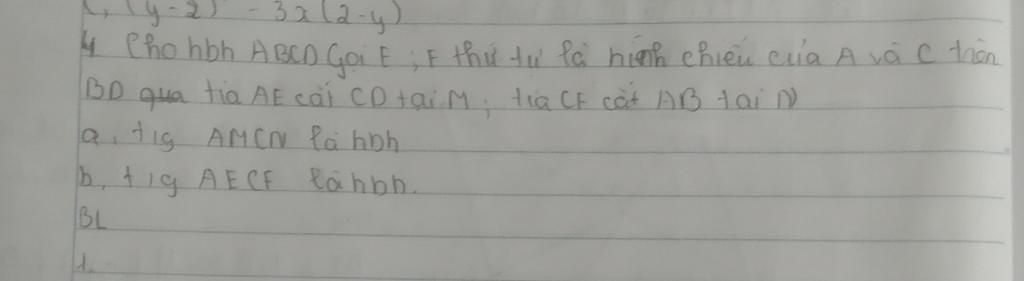 (y-2) - 3x(2-y)
4 Cho hbh ABCD Gọi E ; F thứ tự là hình chiếu của A và C trên
BD qua tia AE cắt CD tại M ; tia CF cắt AB tại N
a, t/g AMCN là hbh
b, t/g AECF là hbh.
BL
1.